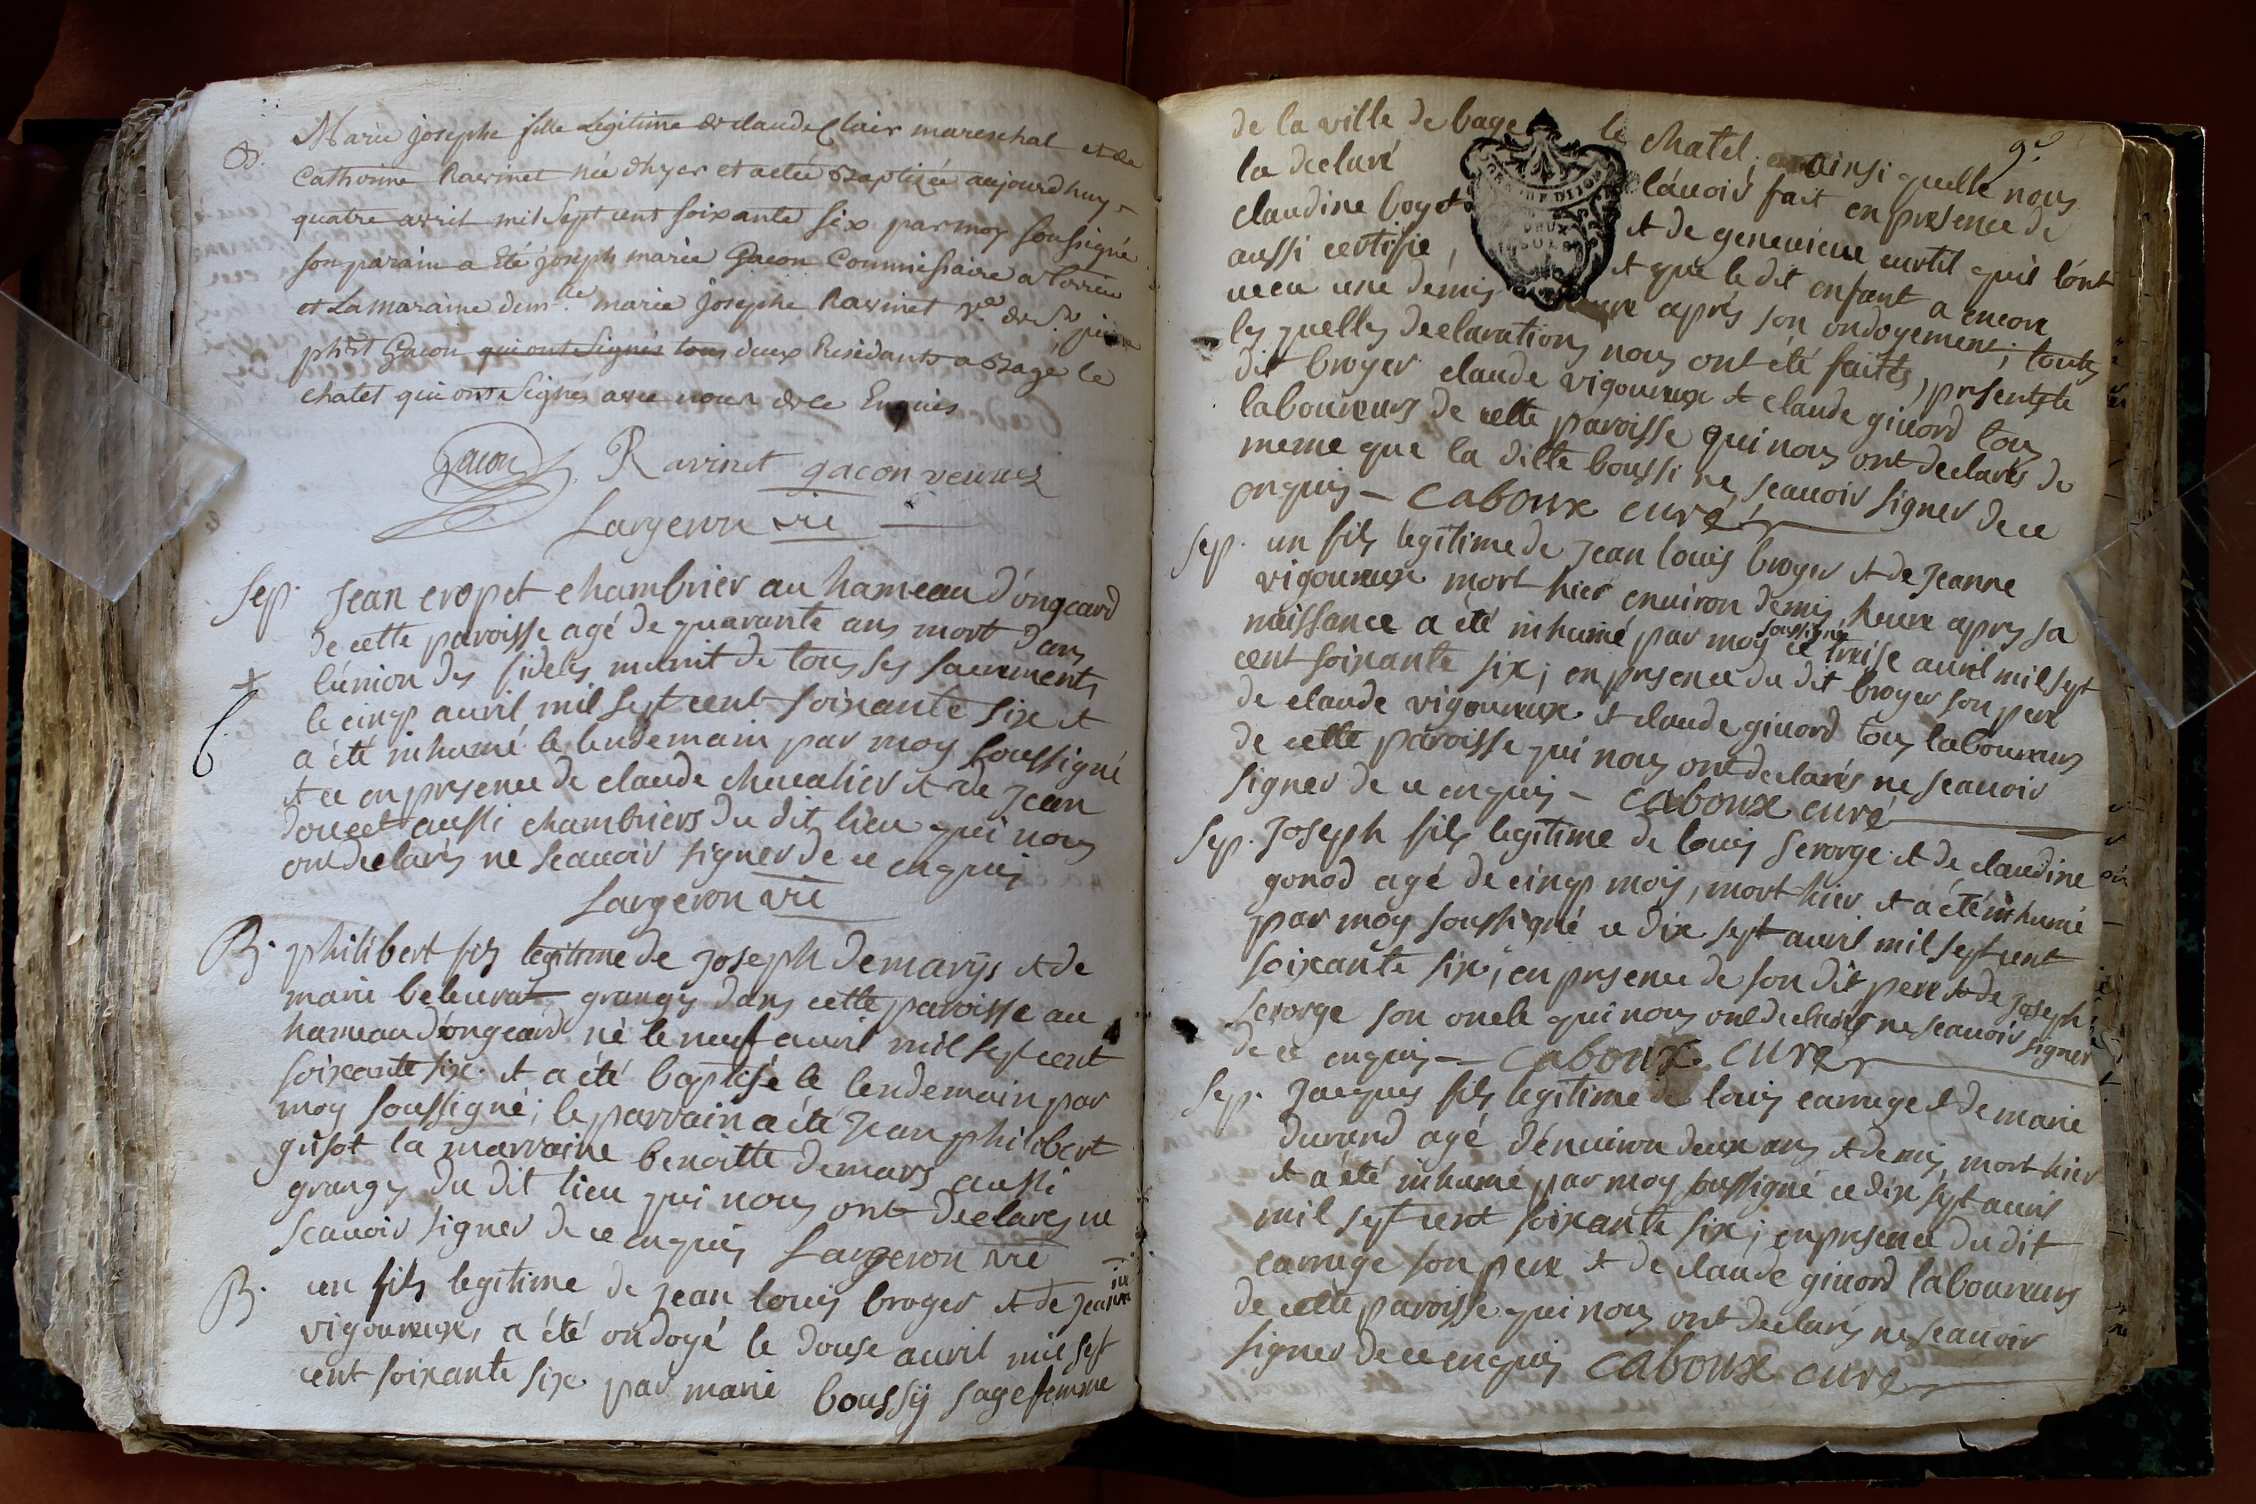 B. Marie josephe fille Legitime de claude Clair mareschal et de
Catherine Ravinet née d'hyer et a etée Baptizée aujourd huy
quatre avril mil Sept cent soixante six par moy soussigné
son parain a Eté joseph marie Gacon Commissaire a
et La maraine dem.lle marie Josephe Ravinet v.e de S.r
phrt Gacon qui ont Signés tous deux Residants a Bage le
chatel qui ont Signés avec nous de ce Enquis
Gacon Ravinet gacon veuve
Largeron vic
Sep. Jean cropet chambrier au hameau d'ongeard
de cette paroisse agé de quarante ans mort dans
l'union des fideles munit de tous ses sacrements
le cinq avril mil sept cent soixante six et
a été inhumé le lendemain par moy soussigné
et ce en presence de claude chevalier et de Jean
doucet aussi chambriers du dit lieu qui nous
ont declarés ne scauoir signer de ce enquis
Largeron vic
B. philibert fils legitime de Joseph demarijs et de
marie beleurat grangers dans cette paroisse au
hameau d'ongeard né le neuf avril mil sept cent
soixante six et a été baptisé le lendemain par
moy soussigné; le parrain a été Jean philibert
gusot la marraine benoitte demars aussi
grangers du dit lieu qui nous ont declarés ne
scauoir signer de ce enquis Largeron vic
B. un fils legitime de Jean louis broyer et de Jeanne
vigoureux, a été ondoyé le douse auril mil sept
cent soixante six par marie boussy sage femme
9.e
de la ville de bage le chatel; ainsi quelle nous
la declaré l'auoir fait en presence de
claudine boyet et de geneuieue curtil qui l'ont
aussi certifie, et que le dit enfant a encore
uecu une demis heure aprés son ondoyement; toutes
les quelles declarations nous ont été faites, present le
dit broyer claude vigoureux et claude giuord tous
laboureurs de cette paroisse qui nous ont declarés de
meme que la ditte boussi ne scauoir signer de ce
enquis - caboux curé
Sep. un fils legitime de Jean louis broyer et de Jeanne
vigoureux mort hier enuiron demis heure apres sa
naissance a été inhumé par moy soussigné ce treise auril mil sept
cent soixante six; en presence du dit broyer son pere
de claude vigoureux et claude giuord tous laboureurs
de cette paroisse qui nous ont declarés ne scauoir
signer de ce enquis - caboux curé
Sep. Joseph fils legitime de louis serorge et de claudine
gonod agé de cinq mois, mort hier et a été inhumé
par moy soussigné ce dix sept auril mil sept cent
soixante six; en presence de son dit pere et de Joseph
serorge son oncle qui nous ont declarés ne scauoir signer
de ce enquis - caboux curé
Sep. Jacques fils legitime de louis carruge et de marie
durand agé d'enuiron deux ans et demis mort hier
et a été inhumé par moy soussigné ce dix sept auril
mil sept cent soixante six; en presence du dit
carruge son pere et de claude giuord laboureurs
de cette paroisse qui nous ont declarés ne scauoir
signer de ce enquis caboux curé